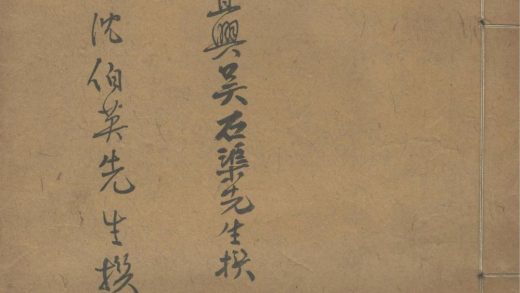 宜興吴石渠先生撰
沈伯英先生撰